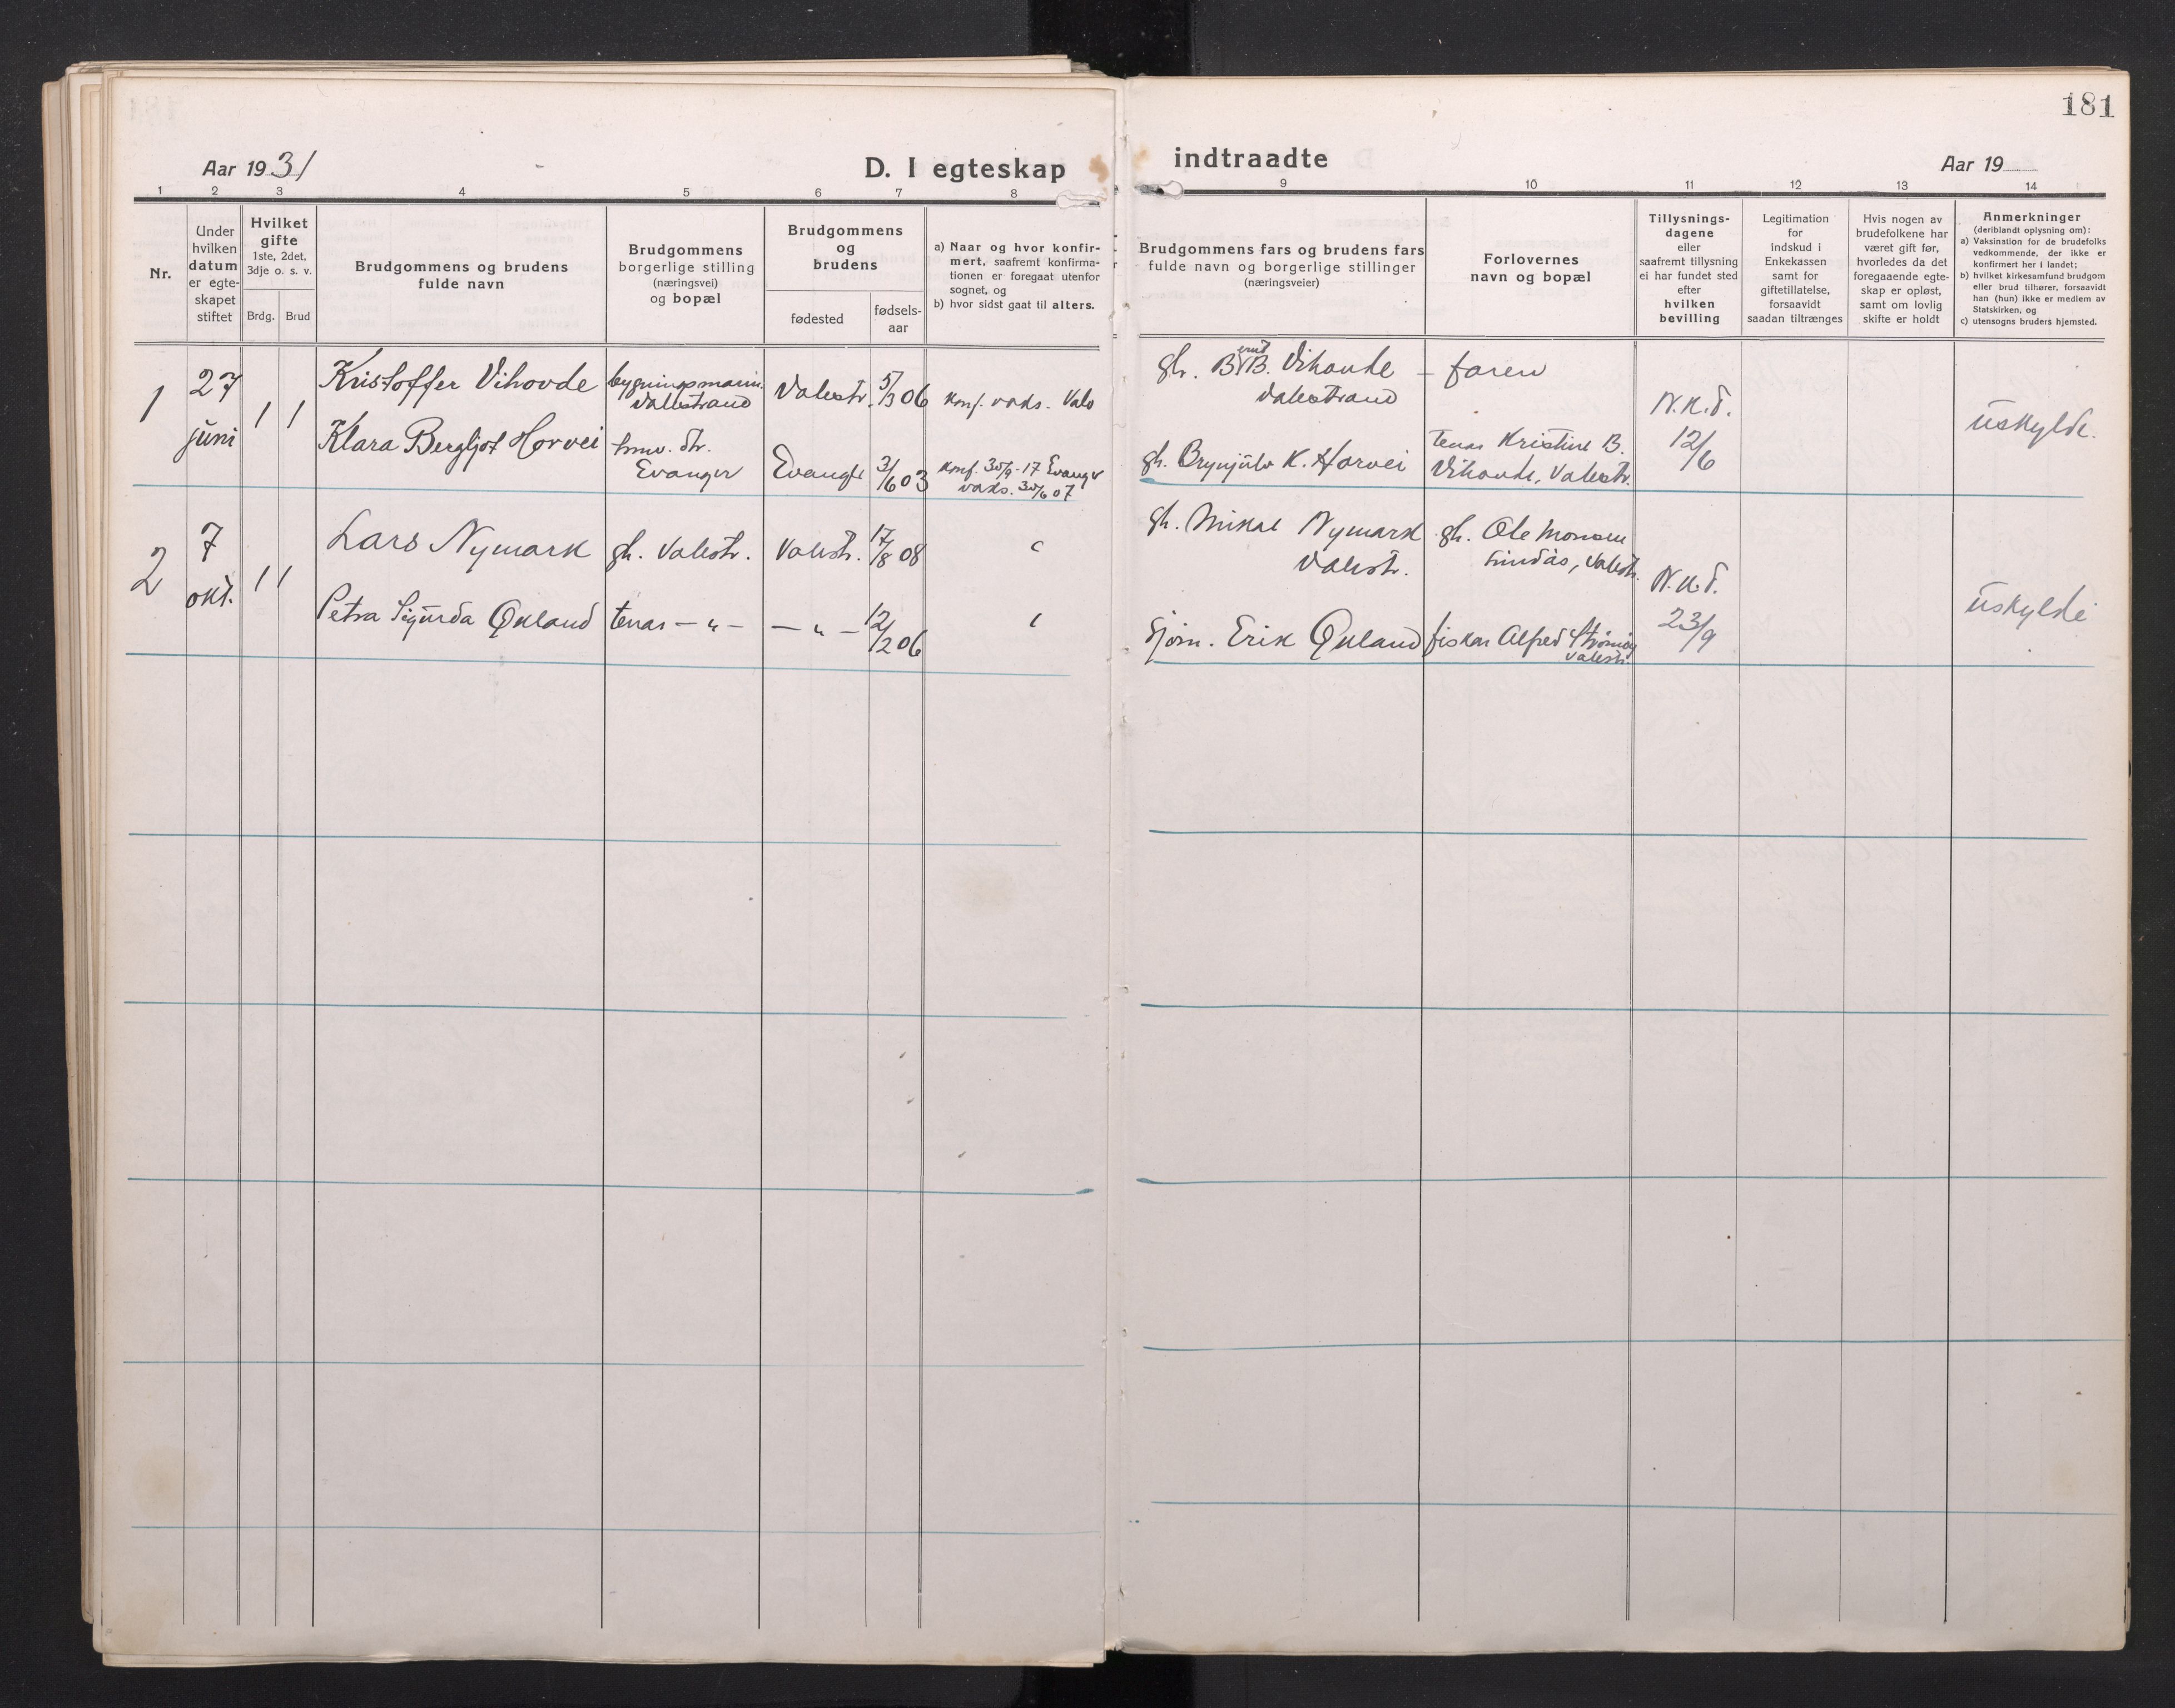 181
Aar 1931
D. I egteskap
indtraadte
Aar 19
1 2 3 4 5 6 7 8
9 10 11 12 13 14
Nr.
Under
hvilken
datum
er egte-
skapet
stiftet
Hvilket
gifte
1ste, 2det,
3dje o. s. v.
Brdg. Brud
Brudgommens og brudens
fulde navn
Brudgommens
borgerlige stilling
(næringsvei)
og bopæl
Brudgommens
og
brudens
fødested
fødsels-
aar
a) Naar og hvor konfir-
mert, saafremt konfirma-
tionen er foregaat utenfor
sognet, og
b) hvor sidst gaat til alters.
Brudgommens fars og brudens fars
fulde navn og borgerlige stillinger
(næringsveier)
Forlovernes
navn og bopæl
Tillysnings-
dagene
eller
saafremt tillysning
ei har fundet sted
efter
hvilken
bevilling
Legitimation
for
indskud i
Enkekassen
samt for
giftetillatelse,
forsaavidt
saadan tiltrænges
Hvis nogen av
brudefolkene har
været gift før,
hvorledes da det
foregaaende egte-
skap er opløst,
samt om lovlig
skifte er holdt
Anmerkninger
(deriblandt oplysning om):
a) Vaksination for de brudefolks
vedkommende, der ikke er
konfirmert her i landet;
b) hvilket kirkesamfund brudgom
eller brud tilhører, forsaavidt
han (hun) ikke er medlem av
Statskirken, og
c) utensogns bruders hjemsted.
1
27
juni
1 1
Kristoffer Vihovde
bygningsmann.
Valestrand
Valestr.
5/3 06
konf. vaks. Vale
gb. B. B. Vihovde
Valestrand
- faren
N.K.T.
12/6
uskylde.
Klara Bergljot Horvei
Evanger
Evanger
3/6 03
konf. 30/9-17 Evanger
vaks. 30/6 07
gb. Brynjulv K. Horvei
tenar Kristine B.
Vihovde, Valestr.
2
7
okt.
1 1
Lars Nymark
gb. Valestr.
Valestr.
17/8 08
gb. Mikal Nymark
Valestr.
gb. Ole Monsen
Lindås, Valestr.
N.K.T.
23/9
uskylde
Petra Sigurda Økland
tenar - " -
- " -
12/2 06
Sjøm. Erik Økland
fiskar Alfred Strømøy
Valestr.